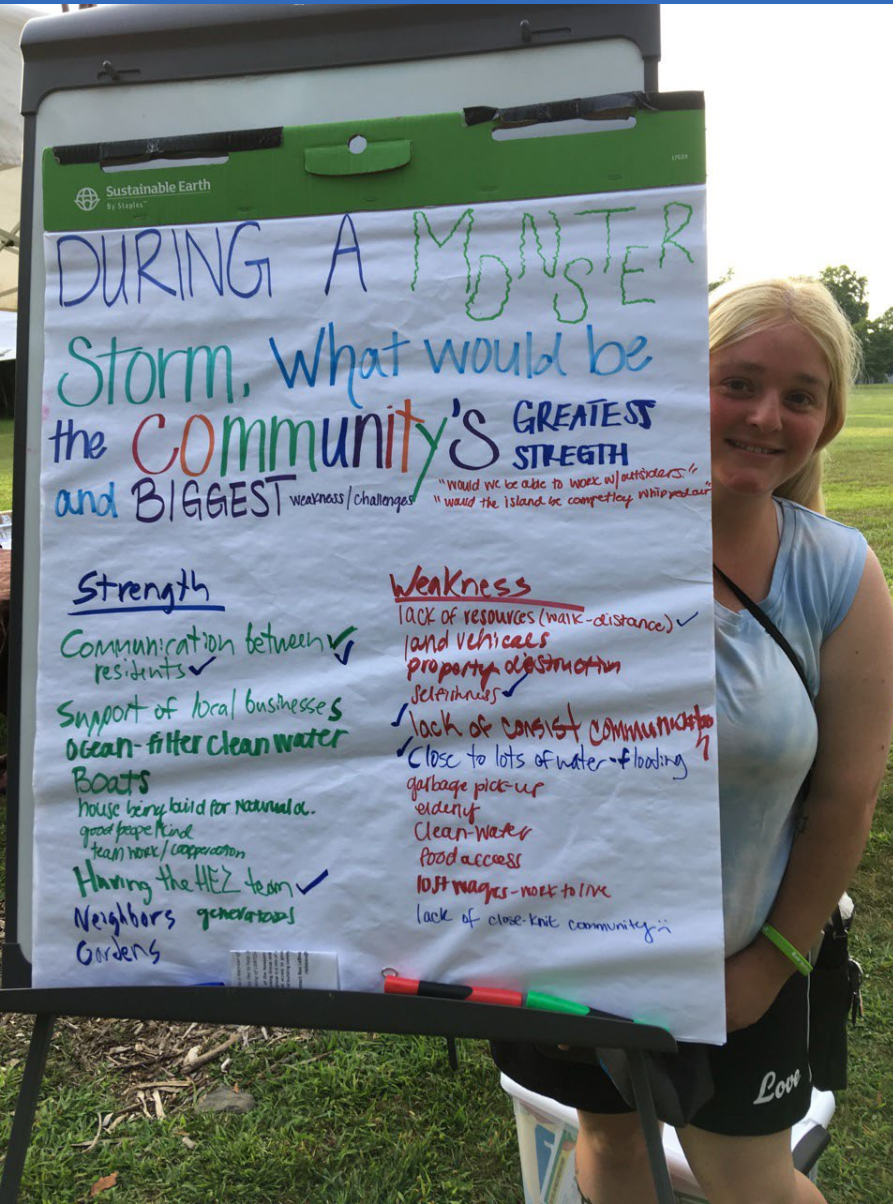 Sustainable Earth
By Staples™
17624
DURING A MONSTER
Storm, What would be
the Community's GREATEST
STREGTH
and BIGGEST weakness/challenges
"would we be able to work w/outsiders."
"would the island be competley whipped out"
Strength
Communication between
residents
Support of local businesses
ocean-filter clean water
Boats
house being build for Natural d.
good people/kind
team work/cooperation
Having the HEZ team
Neighbors generators
Gardens
Weakness
lack of resources (walk-distance)
land vehicles
property destruction
selfishness
lack of consist communication
Close to lots of water-flooding
garbage pick-up
elderly
Clean-water
food access
lost wages-work to live
lack of close-knit community :(
Love